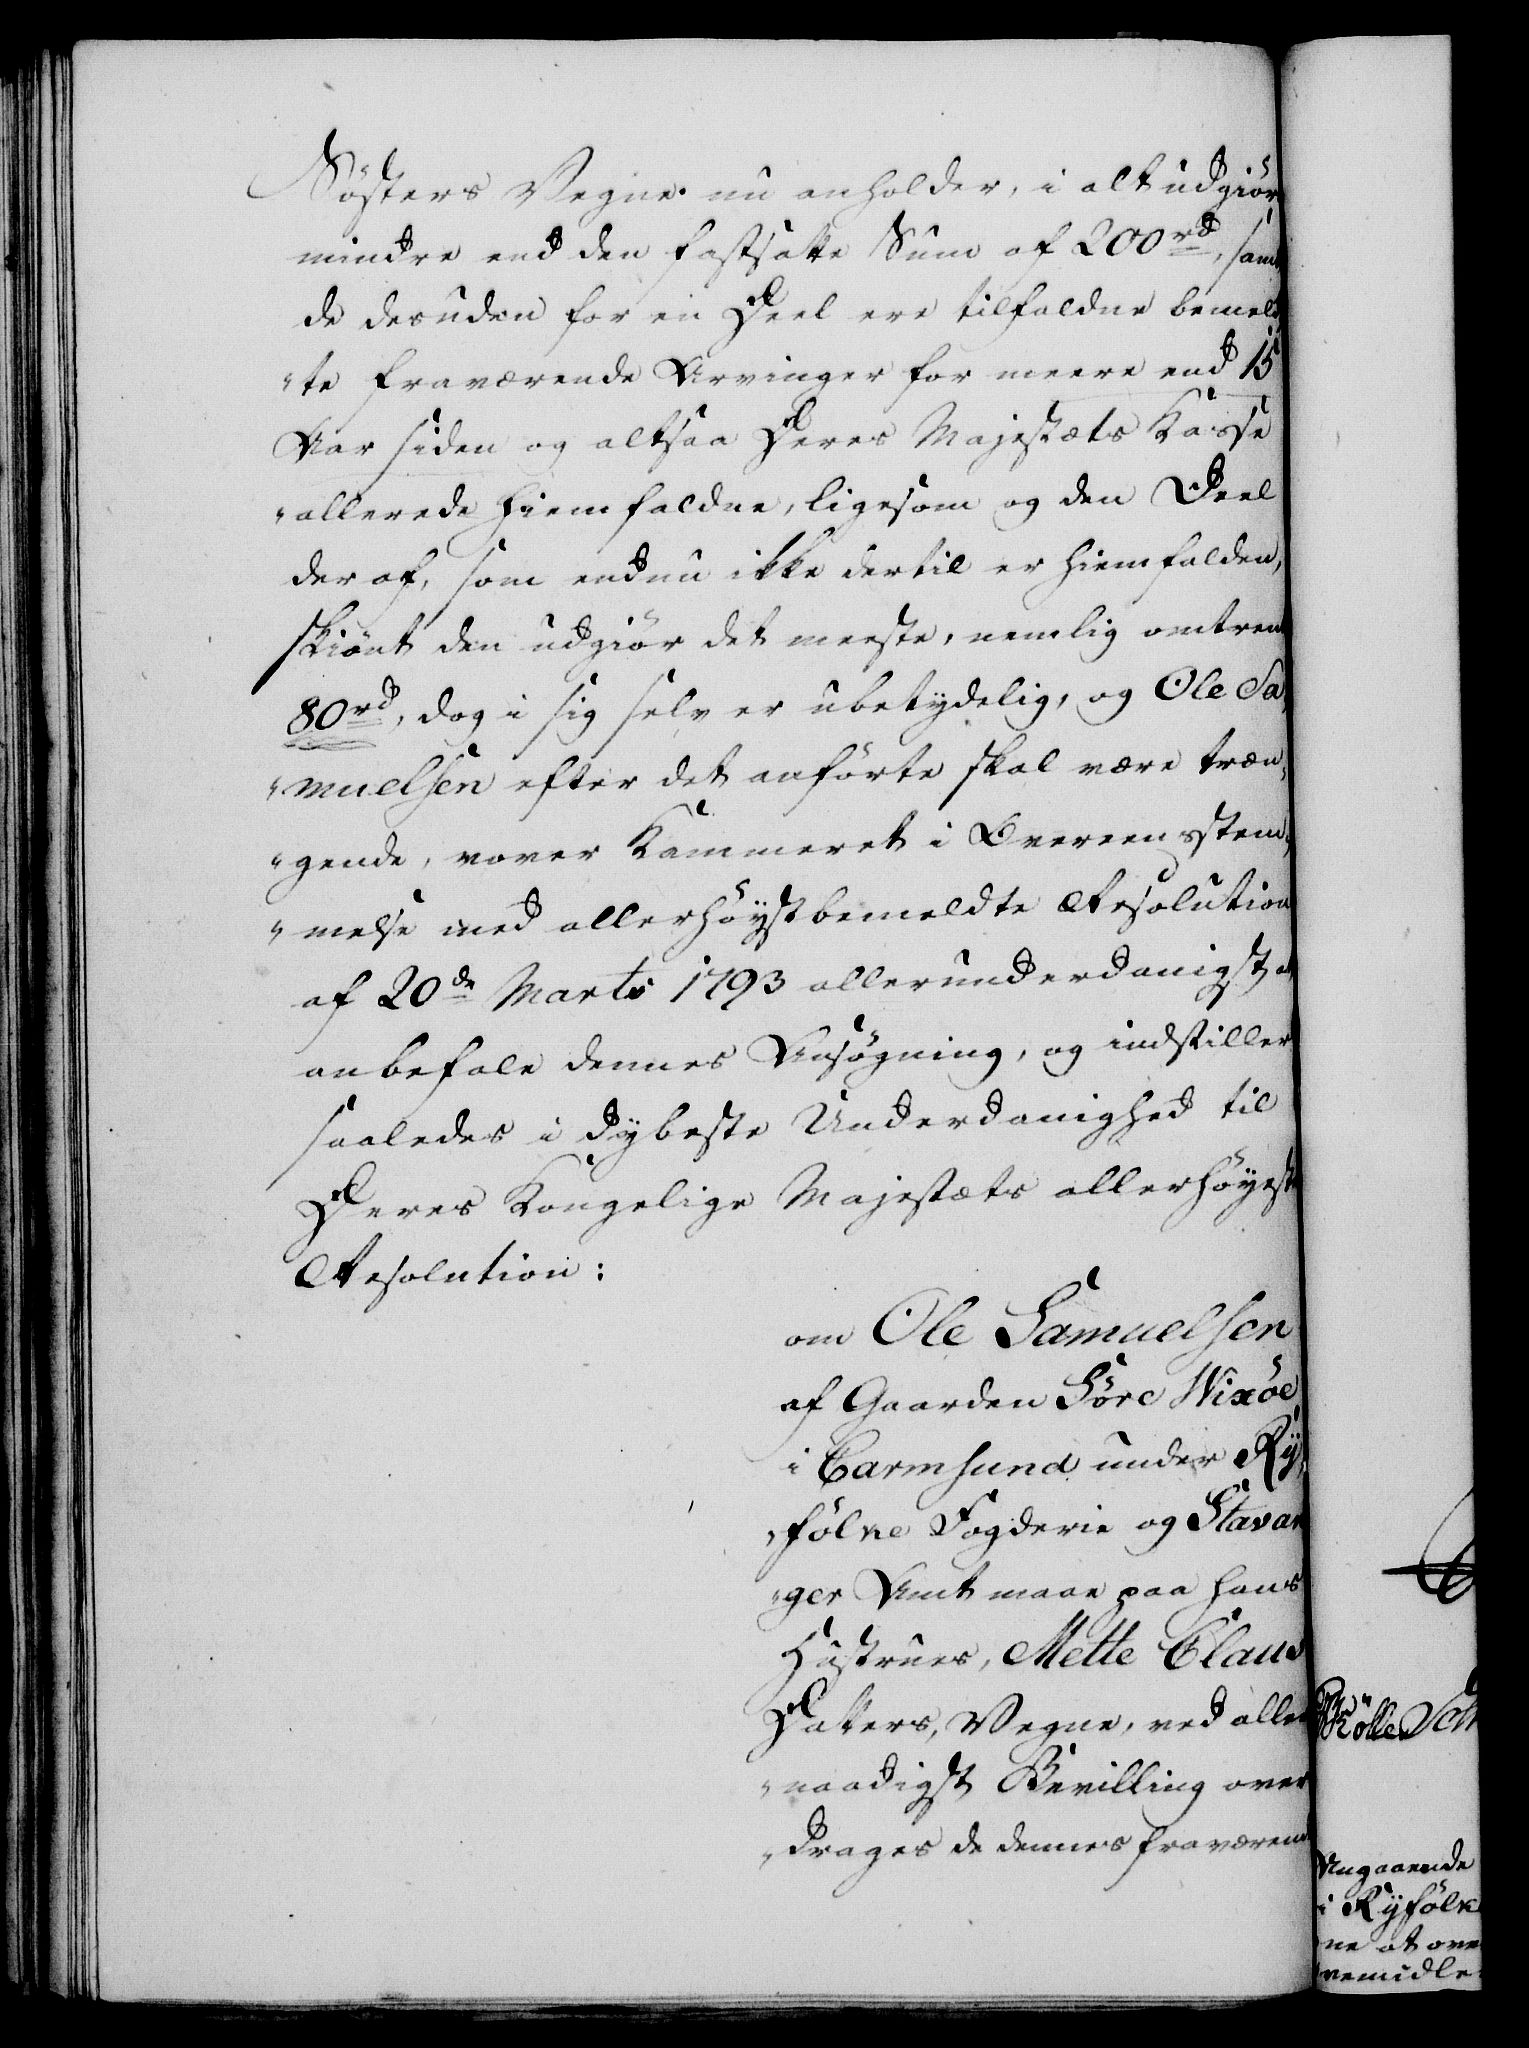 Søsters Vegne nu anholder, i alt udgiør
mindre end den fastsatte Sum af 200 rd, samt
de desuden for en Deel ere tilfaldne bemeld„
„te fraværende Arvinger for meere end 15
Aar siden og altsaa Deres Majestæts Kasse
allerede hiemfaldne, ligesom og den Deel
der af, som endnu ikke dertil er hiemfalden,
skiønt den udgiør det meeste, nemlig omtrent
80 rd, dog i sig selv er ubetydelig, og Ole Sa„
„muelsen efter det anførte skal være træn„
„gende, vover Kammeret i Overeensstem„
„melse med allerhøystbemeldte Resolution
af 20de Marts 1793 allerunderdanigst at
anbefale dennes Ansøgning, og indstiller
saaledes i dybeste Underdanighed til
Deres Kongelige Majestæts allerhøyeste
Resolution:
om Ole Samuelsen
af Gaarden Søre Wixøe
i Carmsund under Ry„
„følke Fogderie og Stavan
„ger Amt maae paa hans
Hustrues, Mette Claus
Datters, Vegne, ved aller
„naadigst Bevilling over
„drages de dennes fraværend
Angaaende
i Ryfølk
ne at ove
vemidle